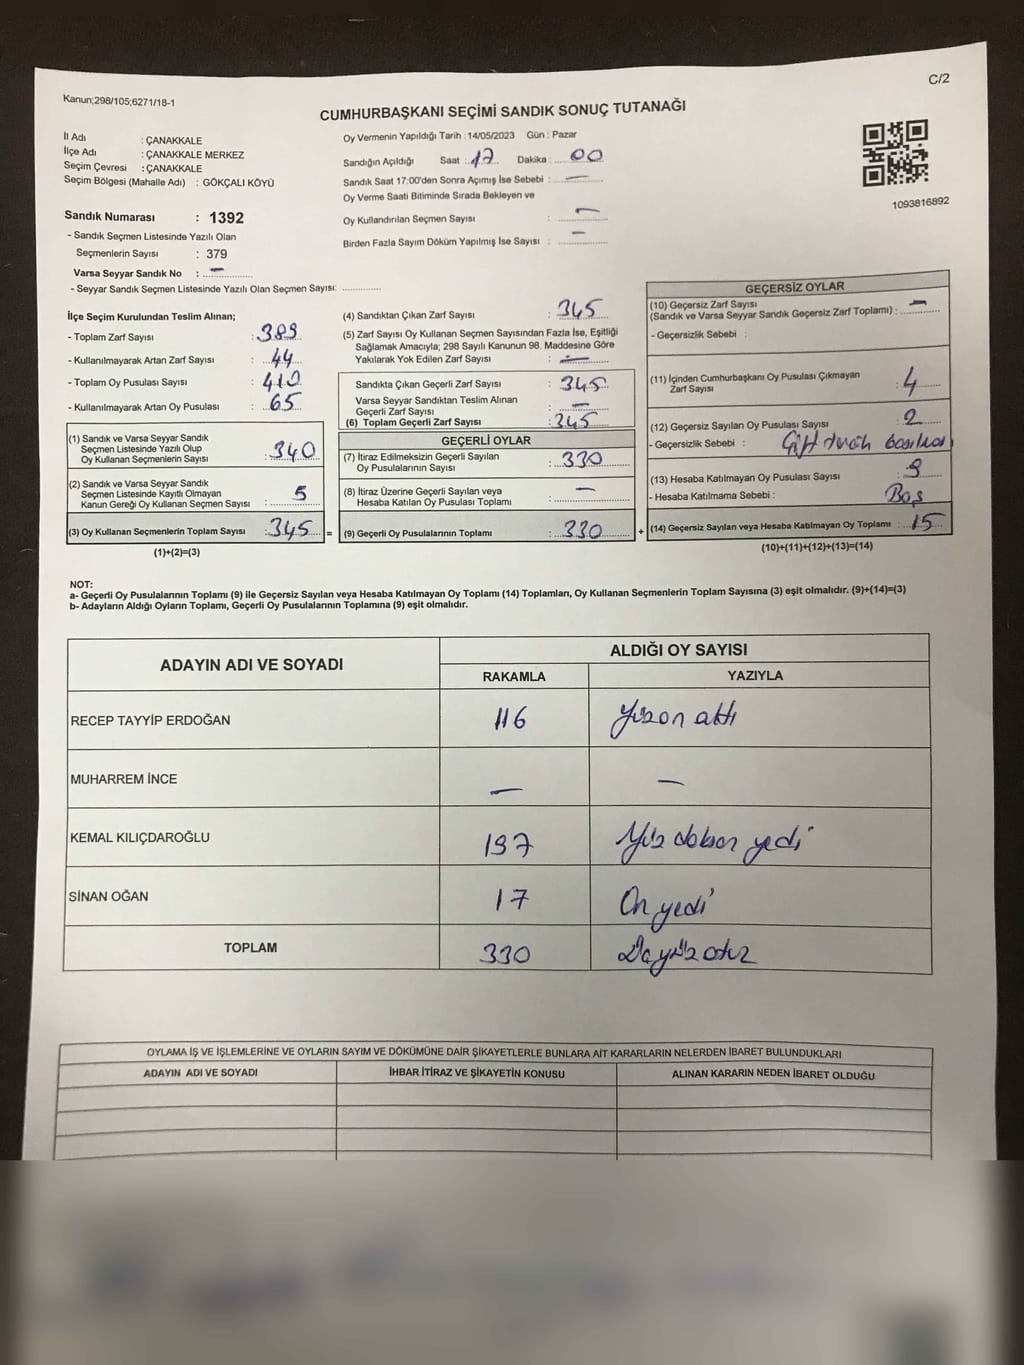 C/2
Kanun;298/105;6271/18-1
CUMHURBAŞKANI SEÇİMİ SANDIK SONUÇ TUTANAĞI
İl Adı : ÇANAKKALE
İlçe Adı : ÇANAKKALE MERKEZ
Seçim Çevresi : ÇANAKKALE
Seçim Bölgesi (Mahalle Adı) : GÖKÇALI KÖYÜ
Sandık Numarası : 1392
- Sandık Seçmen Listesinde Yazılı Olan
Seçmenlerin Sayısı : 379
Varsa Seyyar Sandık No : –
- Seyyar Sandık Seçmen Listesinde Yazılı Olan Seçmen Sayısı:
Oy Vermenin Yapıldığı Tarih : 14/05/2023 Gün : Pazar
Sandığın Açıldığı Saat : 17 Dakika : 00
Sandık Saat 17:00'den Sonra Açımış İse Sebebi : –
Oy Verme Saati Bitiminde Sırada Bekleyen ve
Oy Kullandırılan Seçmen Sayısı : –
Birden Fazla Sayım Döküm Yapılmış İse Sayısı : –
1093816892
İlçe Seçim Kurulundan Teslim Alınan;
- Toplam Zarf Sayısı : 389
- Kullanılmayarak Artan Zarf Sayısı : 44
- Toplam Oy Pusulası Sayısı : 410
- Kullanılmayarak Artan Oy Pusulası : 65
(1) Sandık ve Varsa Seyyar Sandık
Seçmen Listesinde Yazılı Olup
Oy Kullanan Seçmenlerin Sayısı : 340
(2) Sandık ve Varsa Seyyar Sandık
Seçmen Listesinde Kayıtlı Olmayan
Kanun Gereği Oy Kullanan Seçmen Sayısı : 5
(3) Oy Kullanan Seçmenlerin Toplam Sayısı : 345 =
(1)+(2)=(3)
(4) Sandıktan Çıkan Zarf Sayısı : 345
(5) Zarf Sayısı Oy Kullanan Seçmen Sayısından Fazla İse, Eşitliği
Sağlamak Amacıyla; 298 Sayılı Kanunun 98. Maddesine Göre
Yakılarak Yok Edilen Zarf Sayısı : –
Sandıkta Çıkan Geçerli Zarf Sayısı : 345
Varsa Seyyar Sandıktan Teslim Alınan
Geçerli Zarf Sayısı : –
(6) Toplam Geçerli Zarf Sayısı : 345
GEÇERLİ OYLAR
(7) İtiraz Edilmeksizin Geçerli Sayılan
Oy Pusulalarının Sayısı : 330
(8) İtiraz Üzerine Geçerli Sayılan veya
Hesaba Katılan Oy Pusulası Toplamı : –
(9) Geçerli Oy Pusulalarının Toplamı : 330 +
GEÇERSİZ OYLAR
(10) Geçersiz Zarf Sayısı
(Sandık ve Varsa Seyyar Sandık Geçersiz Zarf Toplamı) : –
- Geçersizlik Sebebi :
(11) İçinden Cumhurbaşkanı Oy Pusulası Çıkmayan
Zarf Sayısı : 4
(12) Geçersiz Sayılan Oy Pusulası Sayısı : 2
- Geçersizlik Sebebi : Çift
(13) Hesaba Katılmayan Oy Pusulası Sayısı : 9
- Hesaba Katılmama Sebebi : Boş
(14) Geçersiz Sayılan veya Hesaba Katılmayan Oy Toplamı : 15
(10)+(11)+(12)+(13)=(14)
NOT:
a- Geçerli Oy Pusulalarının Toplamı (9) ile Geçersiz Sayılan veya Hesaba Katılmayan Oy Toplamı (14) Toplamları, Oy Kullanan Seçmenlerin Toplam Sayısına (3) eşit olmalıdır. (9)+(14)=(3)
b- Adayların Aldığı Oyların Toplamı, Geçerli Oy Pusulalarının Toplamına (9) eşit olmalıdır.
ADAYIN ADI VE SOYADI ALDIĞI OY SAYISI
RAKAMLA YAZIYLA
RECEP TAYYİP ERDOĞAN 116 Yüzon altı
MUHARREM İNCE – –
KEMAL KILIÇDAROĞLU 197 Yüz doksan yedi
SİNAN OĞAN 17 On yedi
TOPLAM 330
OYLAMA İŞ VE İŞLEMLERİNE VE OYLARIN SAYIM VE DÖKÜMÜNE DAİR ŞİKAYETLERLE BUNLARA AİT KARARLARIN NELERDEN İBARET BULUNDUKLARI
ADAYIN ADI VE SOYADI İHBAR İTİRAZ VE ŞİKAYETİN KONUSU ALINAN KARARIN NEDEN İBARET OLDUĞU